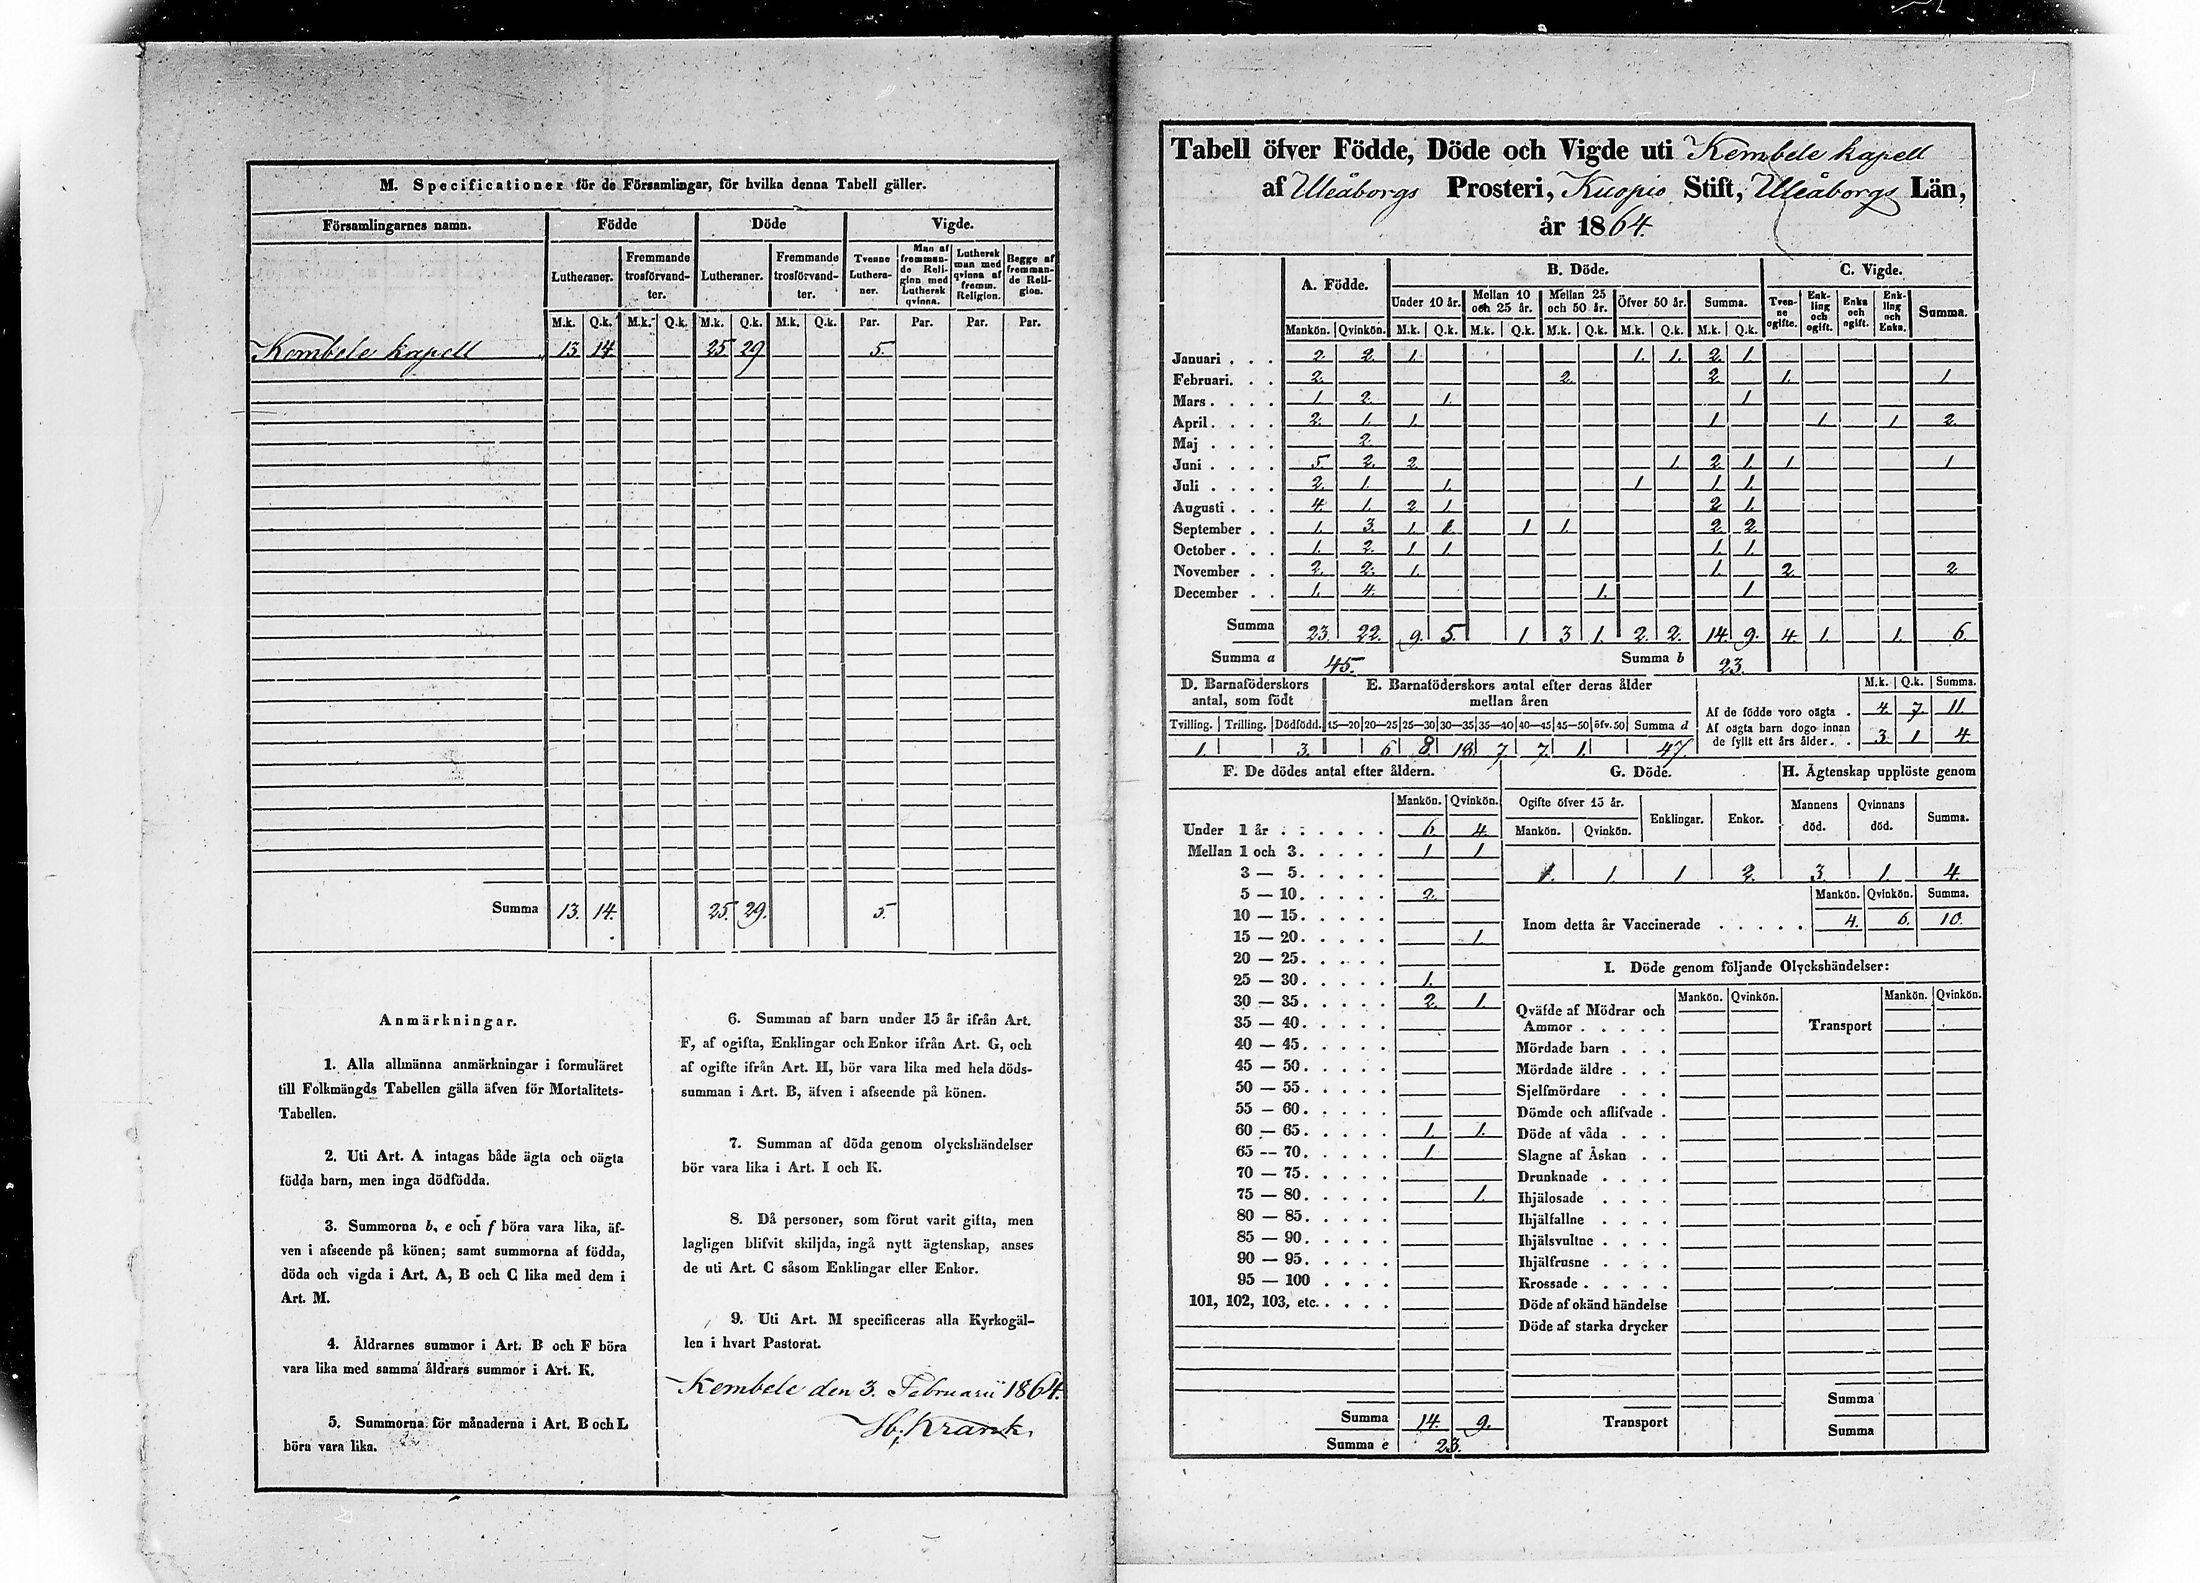 M. Specificationer för de Församlingar, för hvilka denna Tabell gäller.
Församlingarnes namn. Födde Döde Vigde.
Lutheraner. Fremmande trosförvandter. Lutheraner. Fremmande trosförvandter. Tvenne Lutheraner. Man af fremmande Religion med Luthersk qvinna. Luthersk man med qvinna af fremm. Religion. Begge af fremmande Religion.
M.k. Q.k. M.k. Q.k. M.k. Q.k. M.k. Q.k. Par. Par. Par. Par.
Kembele kapell 13 14 25 29 5.
Summa 13. 14. 25. 29. 5.
Anmärkningar.
1. Alla allmänna anmärkningar i formuläret
till Folkmängds Tabellen gälla äfven för Mortalitets-
Tabellen.
2. Uti Art. A intagas både ägta och oägta
födda barn, men inga dödfödda.
3. Summorna b, e och f böra vara lika, äf-
ven i afseende på könen; samt summorna af födda,
döda och vigda i Art. A, B och C lika med dem i
Art. M.
4. Åldrarnes summor i Art. B och F böra
vara lika med samma åldrars summor i Art. K.
5. Summorna för månaderna i Art. B och L
böra vara lika.
6. Summan af barn under 15 år ifrån Art.
F, af ogifta, Enklingar och Enkor ifrån Art. G, och
af ogifte ifrån Art. H, bör vara lika med hela döds-
summan i Art. B, äfven i afseende på könen.
7. Summan af döda genom olyckshändelser
bör vara lika i Art. I och K.
8. Då personer, som förut varit gifta, men
lagligen blifvit skiljda, ingå nytt ägtenskap, anses
de uti Art. C såsom Enklingar eller Enkor.
9. Uti Art. M specificeras alla Kyrkogäl-
len i hvart Pastorat.
Kembele den 3. Februarii 1864.
Krank.
Tabell öfver Födde, Döde och Vigde uti Kembele kapell
af Uleåborgs Prosteri, Kuopio Stift, Uleåborgs Län,
år 1864.
A. Födde. B. Döde. C. Vigde.
Under 10 år. Mellan 10 och 25 år. Mellan 25 och 50 år. Öfver 50 år. Summa. Tvenne ogifte. Enkling och ogift. Enka och ogift. Enkling och Enka. Summa.
Mankön. Qvinkön. M.k. Q.k. M.k. Q.k. M.k. Q.k. M.k. Q.k. M.k. Q.k.
Januari . . . 2. 2. 1. 1. 1. 2. 1.
Februari. . . 2. 2. 2. 1. 1
Mars . . . . 1. 2. 1. 1.
April . . . . 2. 1. 1. 1 1 1 2.
Maj . . . . 2.
Juni . . . . 5. 2. 2. 1. 2. 1. 1 1
Juli . . . . 2. 1. 1. 1 1. 1.
Augusti . . . 4. 1. 2 1. 2 1.
September . . 1. 3. 1. 1 1 1. 2. 2.
October . . . 1. 2. 1 1 1. 1.
November . . 2. 2. 1. 1. 2. 2
December . . 1. 4. 1. 1
Summa 23. 22. 9. 5. 1 3 1. 2. 2. 14. 9. 4. 1. 1. 6.
Summa a 45. Summa b 23.
D. Barnaföderskors antal, som födt
Tvilling. Trilling. Dödfödd.
1. 3.
E. Barnaföderskors antal efter deras ålder mellan åren
15—20 20—25 25—30 30—35 35—40 40—45 45—50 öfv. 50 Summa d
6 8 18. 7. 7. 1. 47.
M.k. Q.k. Summa.
Af de födde voro oägta . 4. 7. 11.
Af oägta barn dogo innan
de fyllt ett års ålder. . 3. 1 4.
F. De dödes antal efter åldern.
Mankön. Qvinkön.
Under 1 år . . . . . . 6. 4.
Mellan 1 och 3. . . . . 1 1
3 — 5. . . . .
5 — 10. . . . . 2.
10 — 15. . . . .
15 — 20. . . . . 1
20 — 25. . . . .
25 — 30. . . . . 1.
30 — 35. . . . . 2. 1.
35 — 40. . . . .
40 — 45. . . . .
45 — 50. . . . .
50 — 55. . . . .
55 — 60. . . . .
60 — 65. . . . . 1. 1.
65 — 70. . . . . 1.
70 — 75. . . . .
75 — 80. . . . . 1.
80 — 85. . . . .
85 — 90. . . . .
90 — 95. . . . .
95 — 100 . . . .
101, 102, 103, etc. . . . .
Summa 14. 9.
Summa e 23.
G. Döde.
Ogifte öfver 15 år. Enklingar. Enkor.
Mankön. Qvinkön.
1. 1. 1 2.
H. Ägtenskap upplöste genom
Mannens död. Qvinnans död. Summa.
3. 1. 4.
Mankön. Qvinkön. Summa.
Inom detta år Vaccinerade . . . . . 4. 6. 10.
I. Döde genom följande Olyckshändelser:
Mankön. Qvinkön. Mankön. Qvinkön.
Qväfde af Mödrar och
Ammor . . . . . Transport
Mördade barn . . .
Mördade äldre . . .
Sjelfmördare . . .
Dömde och aflifvade .
Döde af våda . . .
Slagne af Åskan . .
Drunknade . . . .
Ihjälosade . . . .
Ihjälfallne . . . .
Ihjälsvultne . . . .
Ihjälfrusne . . . .
Krossade . . . . .
Döde af okänd händelse
Döde af starka drycker
Summa
Transport
Summa